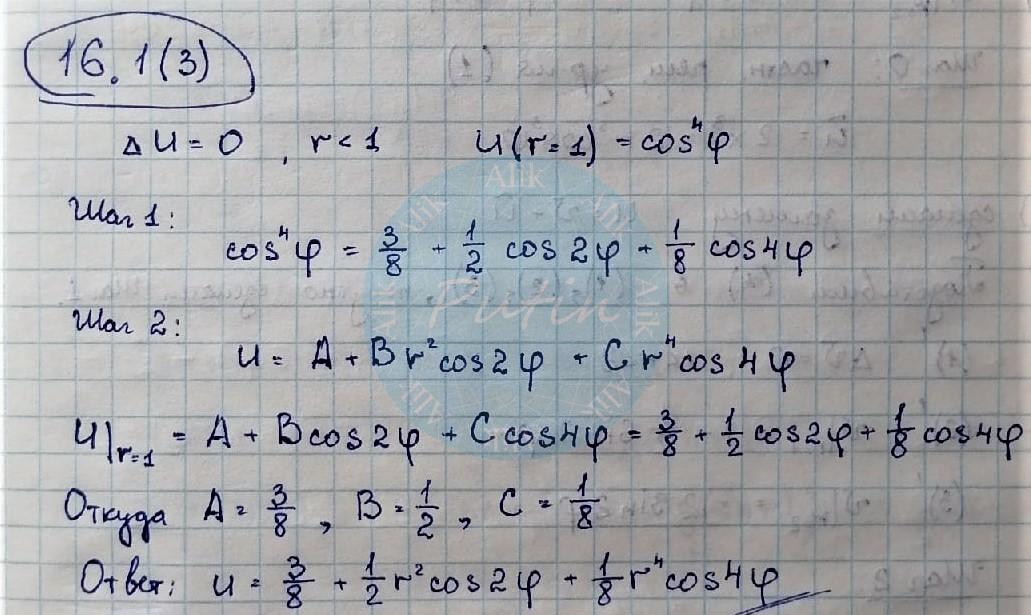 16.1(3)
Δu = 0 , r < 1 u(r=1) = cos⁴φ
Шаг 1:
cos⁴φ = 3/8 + 1/2 cos2φ + 1/8 cos4φ
Шаг 2:
u = A + Br²cos2φ + Cr⁴cos4φ
u|r=1 = A + Bcos2φ + Ccos4φ = 3/8 + 1/2 cos2φ + 1/8 cos4φ
Откуда A = 3/8 , B = 1/2 , C = 1/8
Ответ: u = 3/8 + 1/2 r²cos2φ + 1/8 r⁴cos4φ
Alik
Alik
Alik
Alik
Alik
Putin
Alik
Alik
Alik